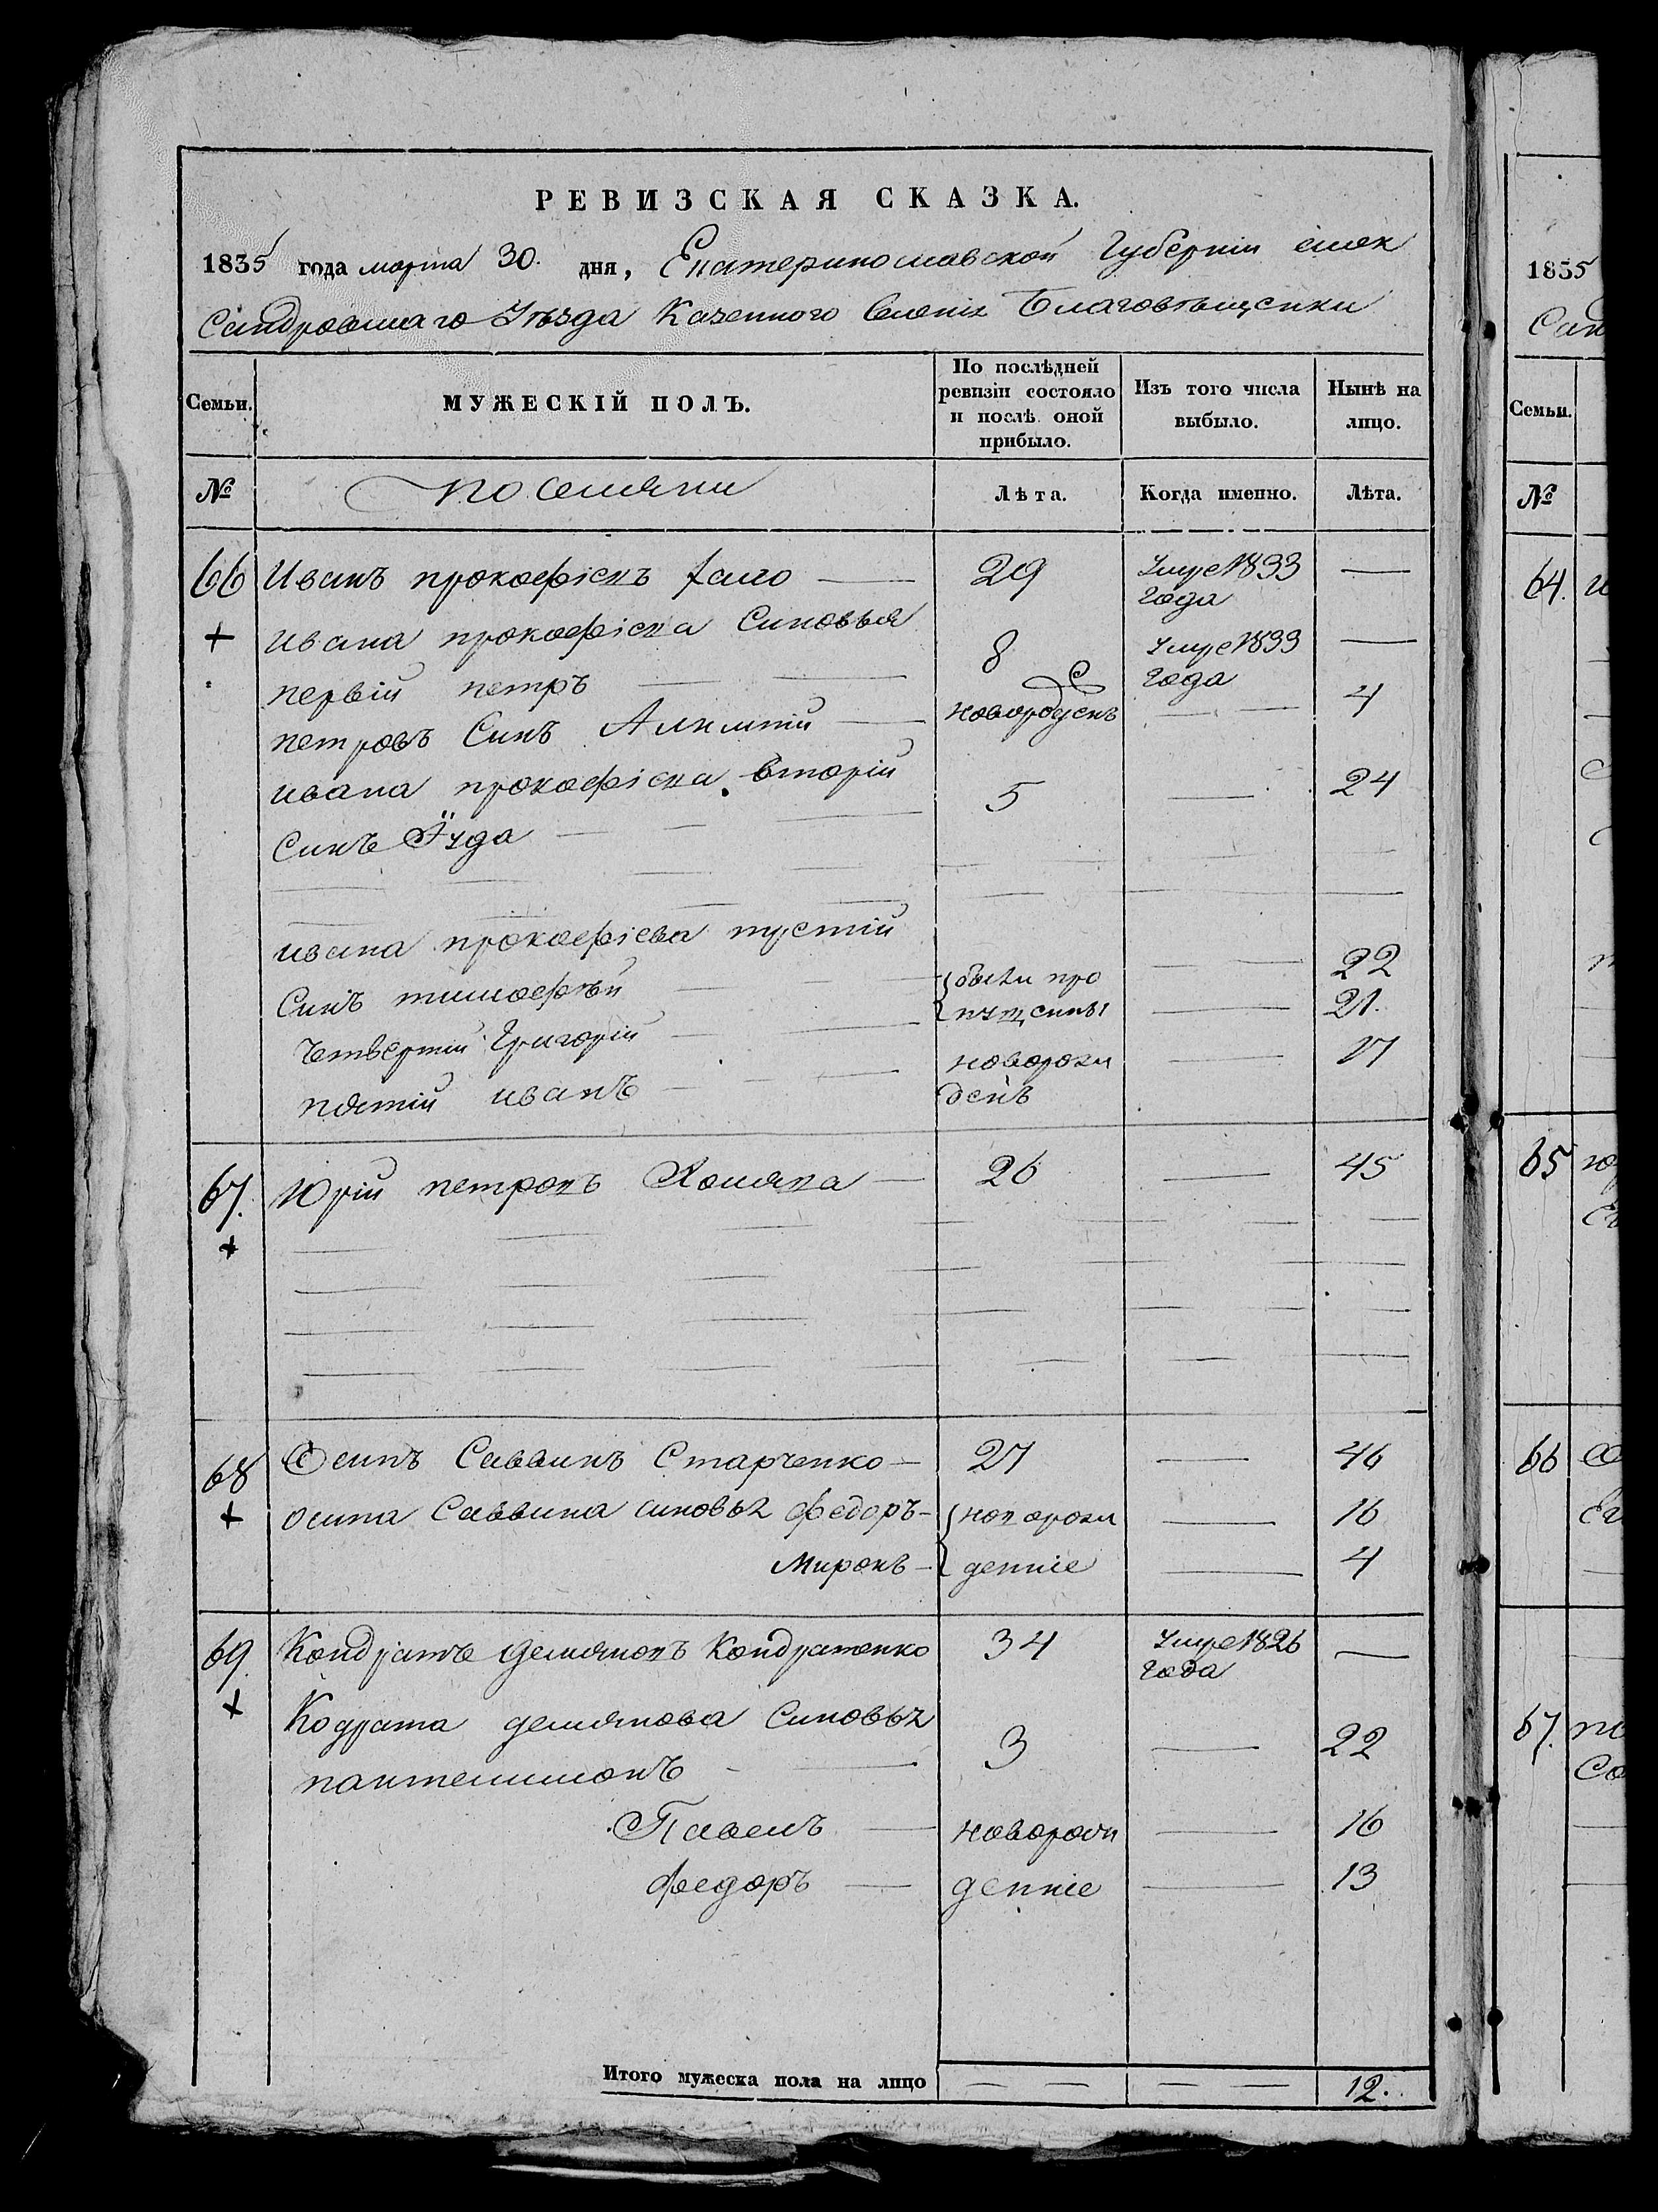 РЕВИЗСКАЯ СКАЗКА.
1835 года марта 30. дня, Екатеринославской Губерніи Алек
Сандровшаго Уѣзда Казенного Селенія Благовѣщенки
Семьи.
МУЖЕСКІЙ ПОЛЪ.
По послѣдней ревизіи состояло и послѣ оной прибыло.
Изъ того числа выбыло.
Нынѣ на лицо.
№ поселяни Лѣта. Когда именно. Лѣта.
66 Иванъ прокофіевъ — 29 Умре 1833 года —
+ ивана прокофіева Синовья
первій петръ — 8 Умре 1833 года —
петровъ Синъ — новорожденъ — 4
ивана прокофіева вторій 5 — 24
Синъ Іуда —
ивана прокофіева третій
Синъ тимофѣй — были про — 22
четвертій Григорій — пущенны — 21.
пятій иванъ — новорож денъ — 17
67. Юрій петровъ — 26 — 45
+
68 Осипъ Саввинъ Старченко — 27 — 46
+ осипа Саввина синовья федоръ — новорож — 16
Миронъ — денніе — 4
69. Кондратъ демяновъ Кондратенко 34 Умре 1826 года —
+ Кодрата демянова Синовья
пантелимонъ — 3 — 22
Павелъ — новорож — 16
федоръ — денніе — 13
Итого мужеска пола на лицо — — — — 12.
1835
Сан
Семьи.
№
64.
65
66
67.